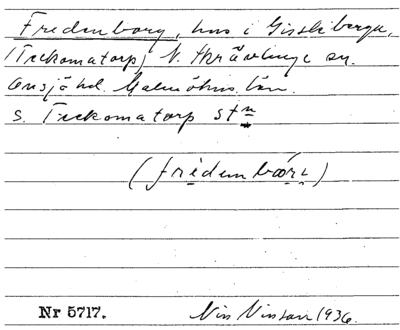 Fredenborg, hus i Gissleberga,
(Teckomatorp) N. Skrävlinge sn.
Onsjö hd. Malmöhus län.
S. Teckomatorp stn
(frèdembórj)
Nr 5717. Nils Nilsson 1936.